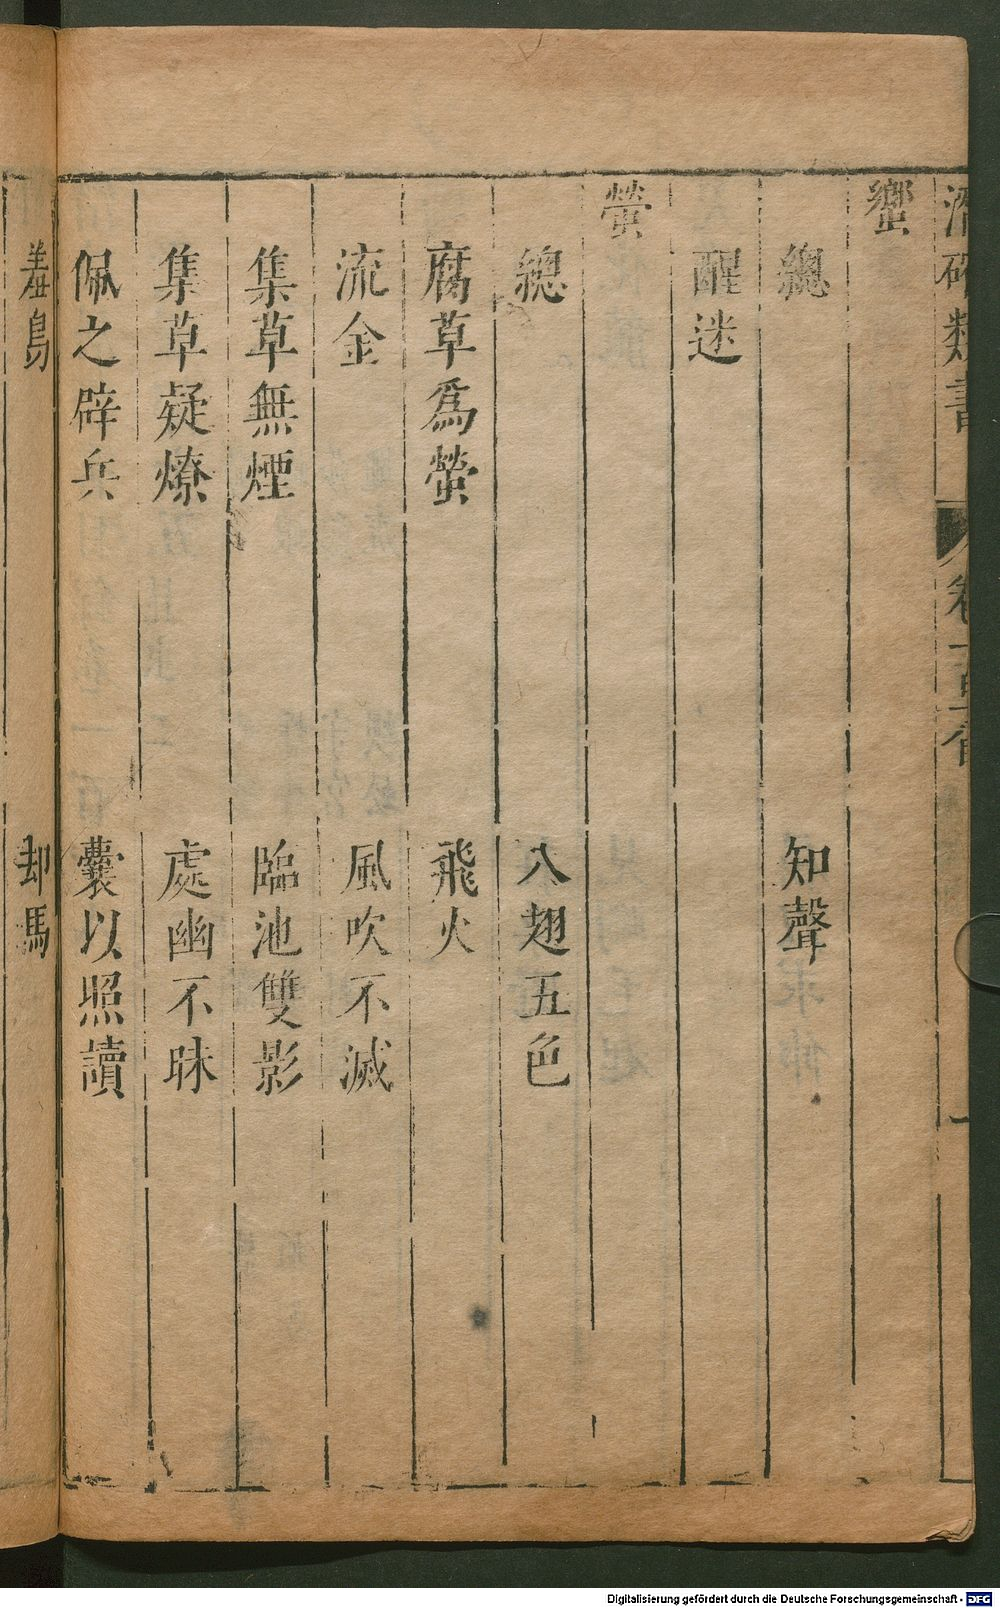 潛確類書
蠁
總 知聲
醒迷
螢
總 八翅五色
腐草爲螢 飛火
流金 風吹不滅
集草無煙 臨池雙影
集草疑燎 處幽不昧
佩之辟兵 囊以照讀
羞鳥 却馬
Digitalisierung gefördert durch die Deutsche Forschungsgemeinschaft - DFG